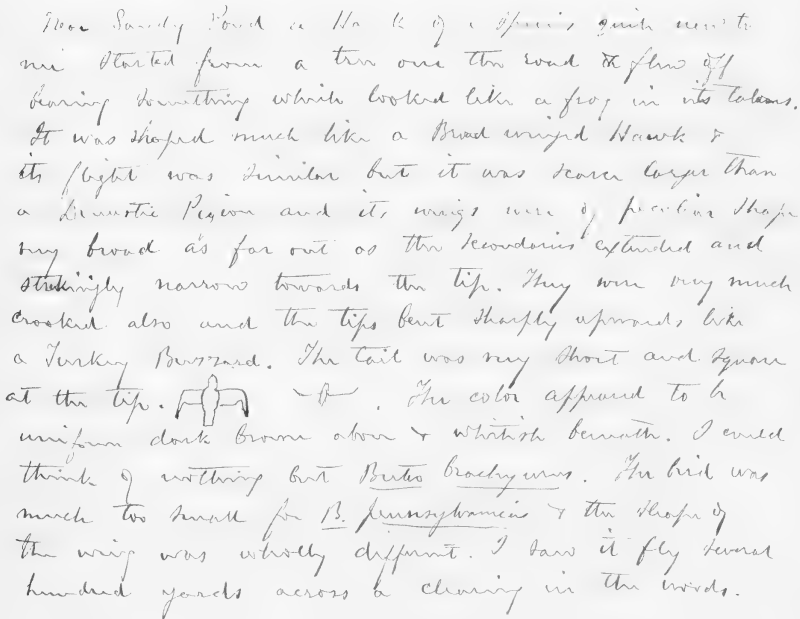 Near Sandy Pond a Hawk of a species quite new to
me started from a tree over the road & flew off
bearing something which looked like a frog in its talons.
It was shaped much like a Broad winged Hawk &
its flight was similar but it was scarce larger than
a Domestic Pigeon and its wings were of peculiar shape
very broad as far out as the secondaries extended and
strikingly narrow towards the tip. They were very much
crooked also and the tips bent sharply upwards like
a Turkey Buzzard. The tail was very short and square
at the tip. . The color appeared to be
uniform dark brown above & whitish beneath. I could
think of nothing but Buteo brachyurus. The bird was
much too small for B. pennsylvanicus & the shape of
the wing was wholly different. I saw it fly several
hundred yards across a clearing in the woods.